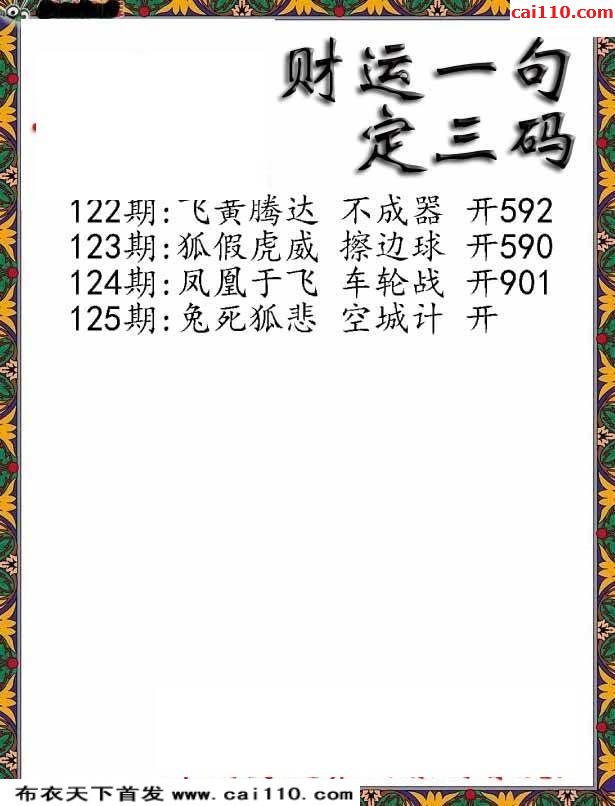 cai110.com
财运一句
定三码
122期:飞黄腾达 不成器 开592
123期:狐假虎威 擦边球 开590
124期:凤凰于飞 车轮战 开901
125期:兔死狐悲 空城计 开
布衣天下首发 www.cai110.com